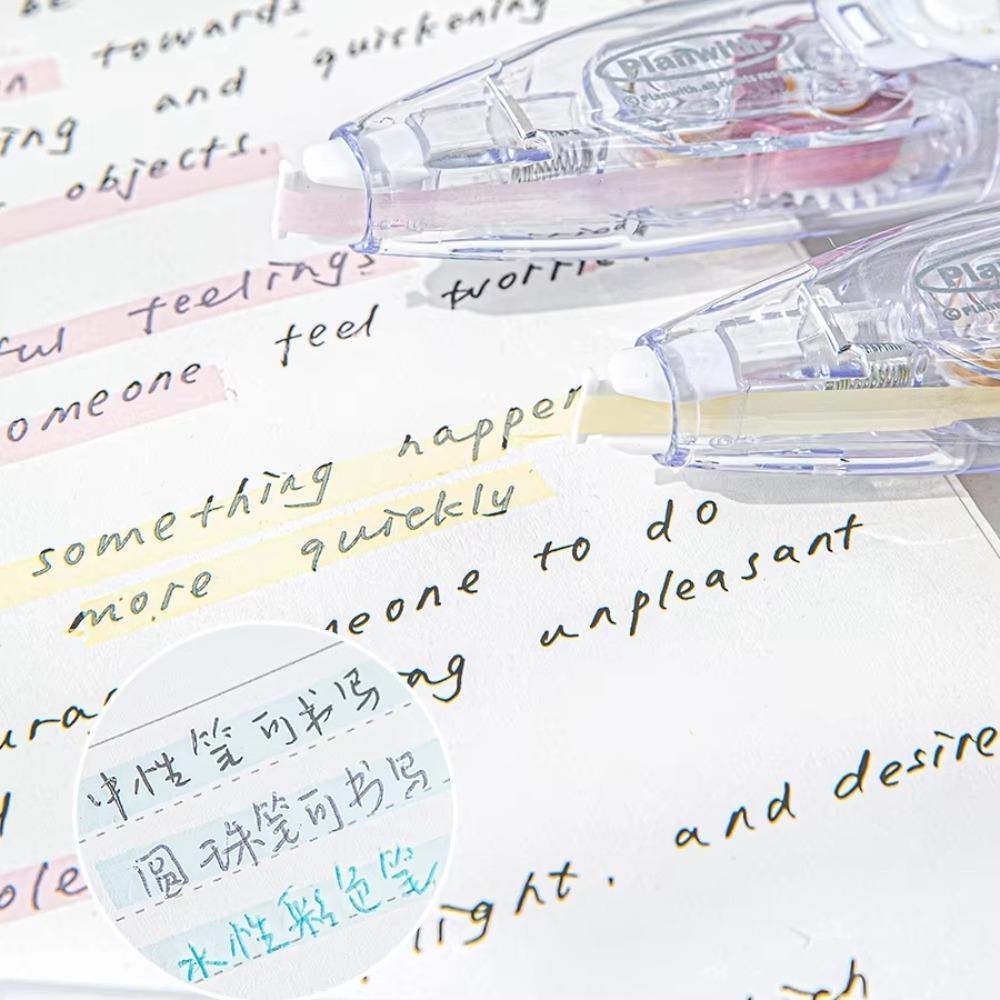 be
towards quickening
n
ing and
objects.
Planwith
©Planwith.all rights reserved
ful feelings
feel worrie
omeone
Plan
something happen
more quickly
to do
meone
unpleasant
ng
中性笔可书写
圆珠笔可书写
水性彩色笔
and desire
ole
light.